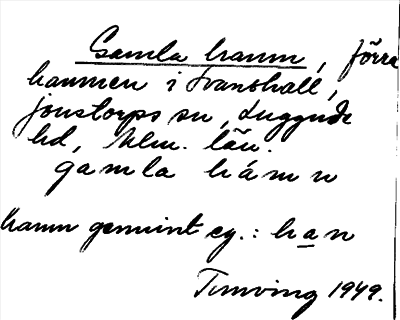 Gamla hamn, förra
hamnen i Svanshall,
Jonstorps sn, Luggude
hd, Mlm. län.
gamla hámn
hamn genuint eg.: han
1949.